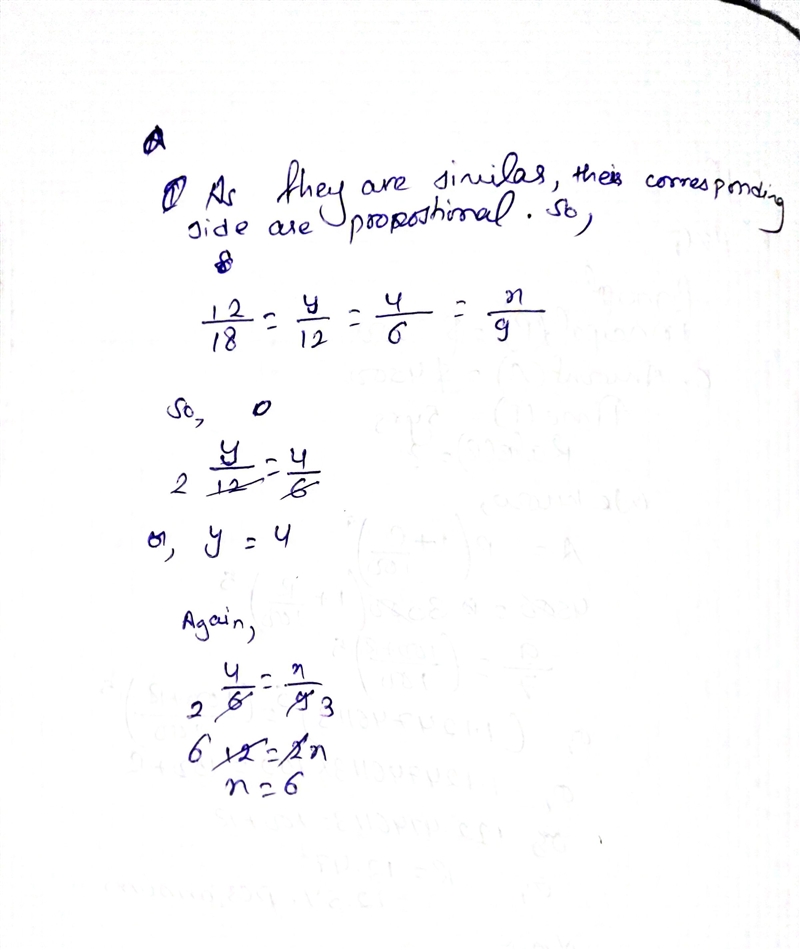 ① As they are similar, their corresponding
side are proportional. So,
12/18 = y/12 = 4/6 = x/9
So,
2 y/12 = 4/6
or, y = 4
Again,
2 4/6 = x/9 3
6 12 = 2x
x = 6